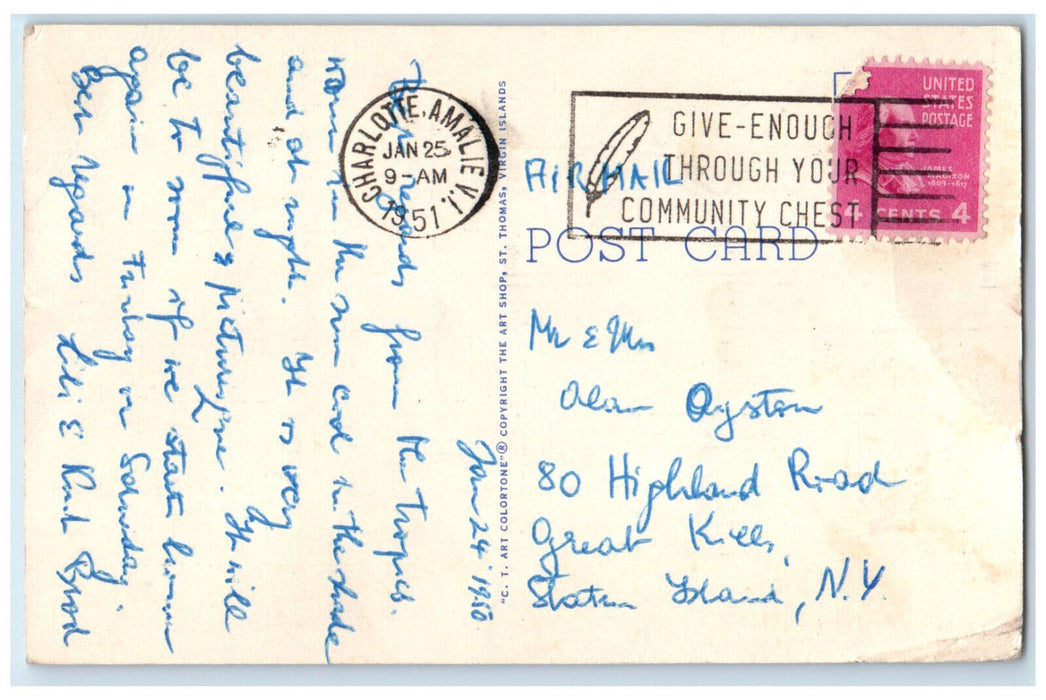 Jan 24 1950
Many regards from the tropics.
Warm in the sun cool in the shade
and at night. It is very
beautiful & picturesque. It will
be to soon if we start home
again on Friday or Saturday.
Best regards Lili &
CHARLOTTE AMALIE V.I.
JAN 25
9-AM
1951
GIVE-ENOUGH
THROUGH YOUR
COMMUNITY CHEST
UNITED
STATES
POSTAGE
JAMES
MADISON
1809-1817
4 CENTS 4
AIR MAIL
POST CARD
"C. T. ART COLORTONE"® COPYRIGHT THE ART SHOP, ST. THOMAS, VIRGIN ISLANDS
Mr & Mrs
Alan Oyston
80 Highland Road
Great Kills,
Staten Island, N.Y.